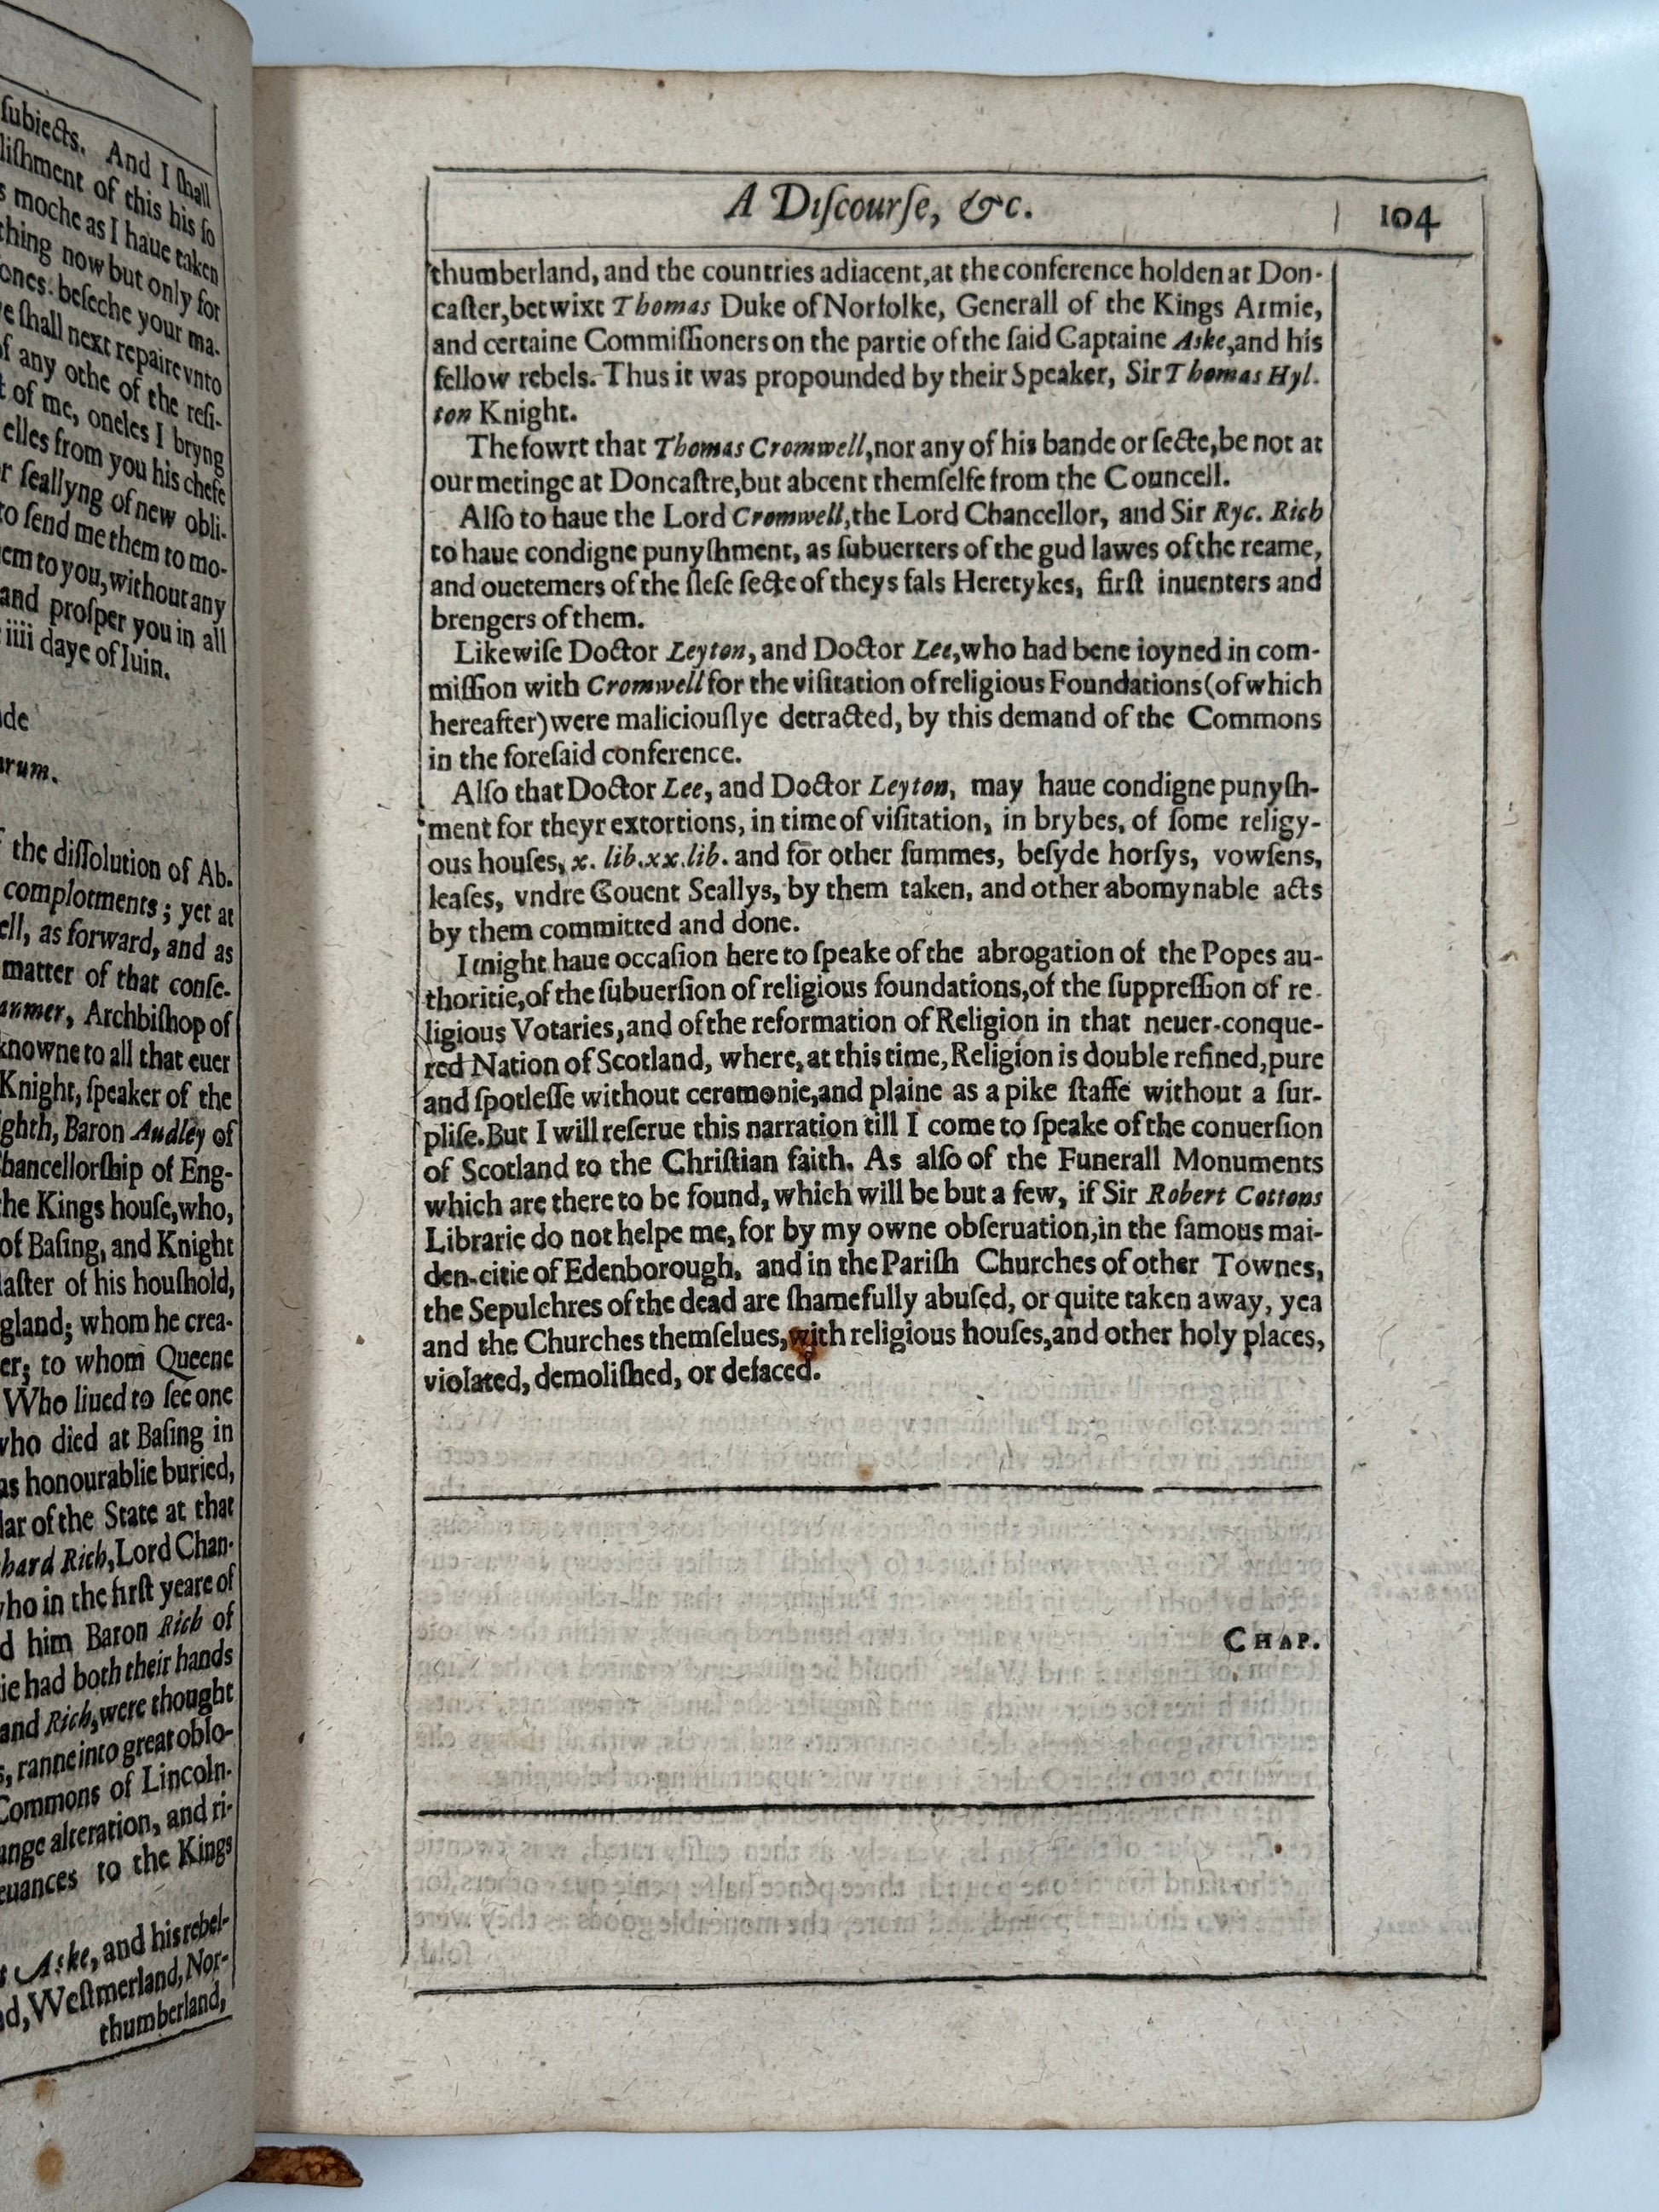 ſubiects. And I ſhall
liſhment of this his ſo
s moche as I haue taken
thing now but only for
ones. beſeche your ma-
e ſhall next repaire vnto
of any othe of the reſi-
t of me, oneles I bryng
elles from you his chefe
r ſeallyng of new obli-
to ſend me them to mo-
em to you, without any
and proſper you in all
iiii daye of Iuin.
de
rum.
the diſſolution of Ab.
complotments; yet at
ell, as forward, and as
matter of that conſe-
anmer, Archbiſhop of
knowne to all that euer
Knight, ſpeaker of the
ighth, Baron Audley of
hancellorſhip of Eng-
he Kings houſe, who,
of Baſing, and Knight
laſter of his houſhold,
gland; whom he crea-
er; to whom Queene
Who liued to ſee one
who died at Baſing in
as honourablie buried,
lar of the State at that
hard Rich, Lord Chan-
who in the firſt yeare of
d him Baron Rich of
ie had both their hands
and Rich, were thought
s, ranne into great oblo-
Commons of Lincoln-
ange alteration, and ri-
euances to the Kings
t Aske, and his rebel-
d, Weſtmerland, Nor-
thumberland,
A Diſcourſe, &c. 104
thumberland, and the countries adiacent, at the conference holden at Don-
caſter, betwixt Thomas Duke of Norfolke, Generall of the Kings Armie,
and certaine Commiſſioners on the partie of the ſaid Captaine Aske, and his
fellow rebels. Thus it was propounded by their Speaker, Sir Thomas Hyl.
ton Knight.
The fowrt that Thomas Cromwell, nor any of his bande or ſecte, be not at
our metinge at Doncaſtre, but abcent themſelfe from the Councell.
Alſo to haue the Lord Cromwell, the Lord Chancellor, and Sir Ryc. Rich
to haue condigne punyſhment, as ſubuerters of the gud lawes of the reame,
and ouetemers of the ſleſe ſecte of theys fals Heretykes, firſt inuenters and
brengers of them.
Likewiſe Doctor Leyton, and Doctor Lee, who had bene ioyned in com-
miſſion with Cromwell for the viſitation of religious Foundations (of which
hereafter) were maliciouſlye detracted, by this demand of the Commons
in the foreſaid conference.
Alſo that Doctor Lee, and Doctor Leyton, may haue condigne punyſh-
ment for theyr extortions, in time of viſitation, in brybes, of ſome religy-
ous houſes, x. lib. xx. lib. and for other ſummes, beſyde horſys, vowſens,
leaſes, vndre Couent Seallys, by them taken, and other abomynable acts
by them committed and done.
I might haue occaſion here to ſpeake of the abrogation of the Popes au-
thoritie, of the ſubuerſion of religious foundations, of the ſuppreſſion of re-
ligious Votaries, and of the reformation of Religion in that neuer-conque-
red Nation of Scotland, where, at this time, Religion is double refined, pure
and ſpotleſſe without ceremonie, and plaine as a pike ſtaffe without a ſur-
pliſe. But I will reſerue this narration till I come to ſpeake of the conuerſion
of Scotland to the Chriſtian faith. As alſo of the Funerall Monuments
which are there to be found, which will be but a few, if Sir Robert Cottons
Librarie do not helpe me, for by my owne obſeruation, in the famous mai-
den-citie of Edenborough, and in the Pariſh Churches of other Townes,
the Sepulchres of the dead are ſhamefully abuſed, or quite taken away, yea
and the Churches themſelues, with religious houſes, and other holy places,
violated, demoliſhed, or defaced.
CHAP.